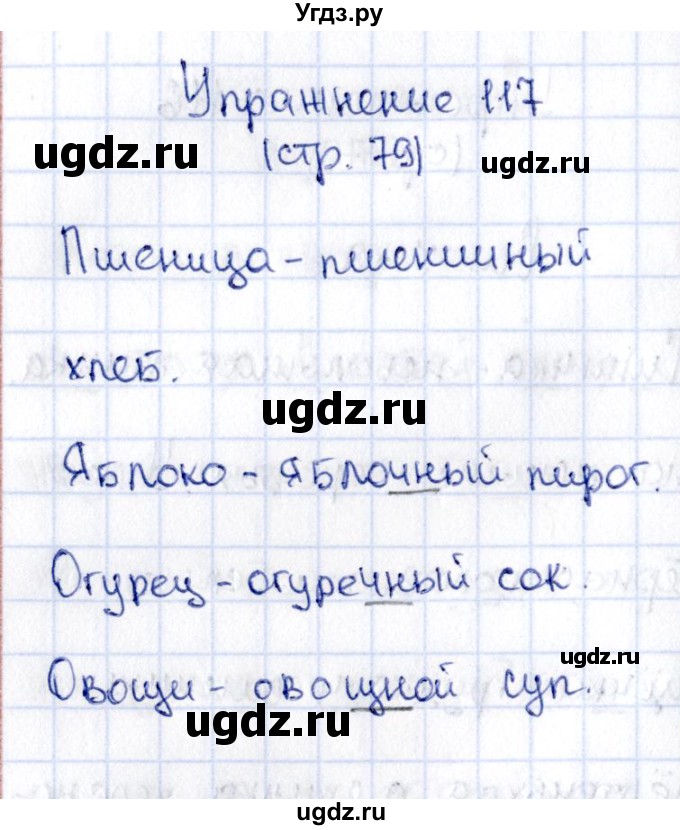 Угдз.ру
Упражнение 117
ugdz.ru (стр. 79) ugdz.ru
Пшеница - пшеничный
хлеб.
ugdz.ru
Яблоко - яблочный пирог.
Огурец - огуречный сок.
ugdz.ru
Овощи - овощной суп.
ugdz.ru
ugdz.ru